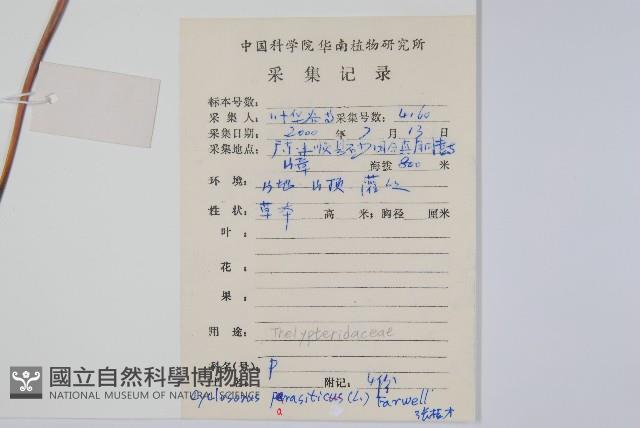 中国科学院华南植物研究所
采集记录
标本号数：
采集人： 叶华谷 采集号数： 4160
采集日期： 2000 年 7 月 13 日
采集地点： 广东
海拔 820 米
环境： 山地 山顶 灌丛
性状： 草本 高 米；胸径 厘米
叶：
花：
果：
用途： Thelypteridaceae
科名(号)： P
附记： 4份
Cyclosorus parasiticus (L.) Farwell
a
國立自然科學博物館
NATIONAL MUSEUM OF NATURAL SCIENCE